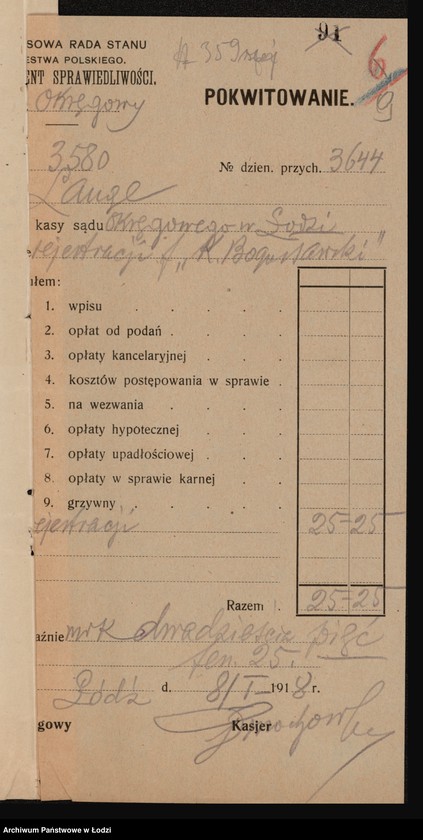 SOWA RADA STANU
STWA POLSKIEGO.
ENT SPRAWIEDLIWOŚCI.
Okręgowy
91
6
9
POKWITOWANIE.
3580
№ dzien. przych. 3644
Lange
kasy sądu Okręgowego w Łodzi
rejestracji f. „K. Bogusławski"
ułem:
1. wpisu
2. opłat od podań
3. opłaty kancelaryjnej
4. kosztów postępowania w sprawie
5. na wezwania
6. opłaty hypotecznej
7. opłaty upadłościowej
8. opłaty w sprawie karnej
9. grzywny
ejestracji 25=25
Razem 25=25
aźnie mrk dwadzieścia pięć
fen. 25.
Łódź d. 8/I–1918 r.
gowy Kasjer
Archiwum Państwowe w Łodzi